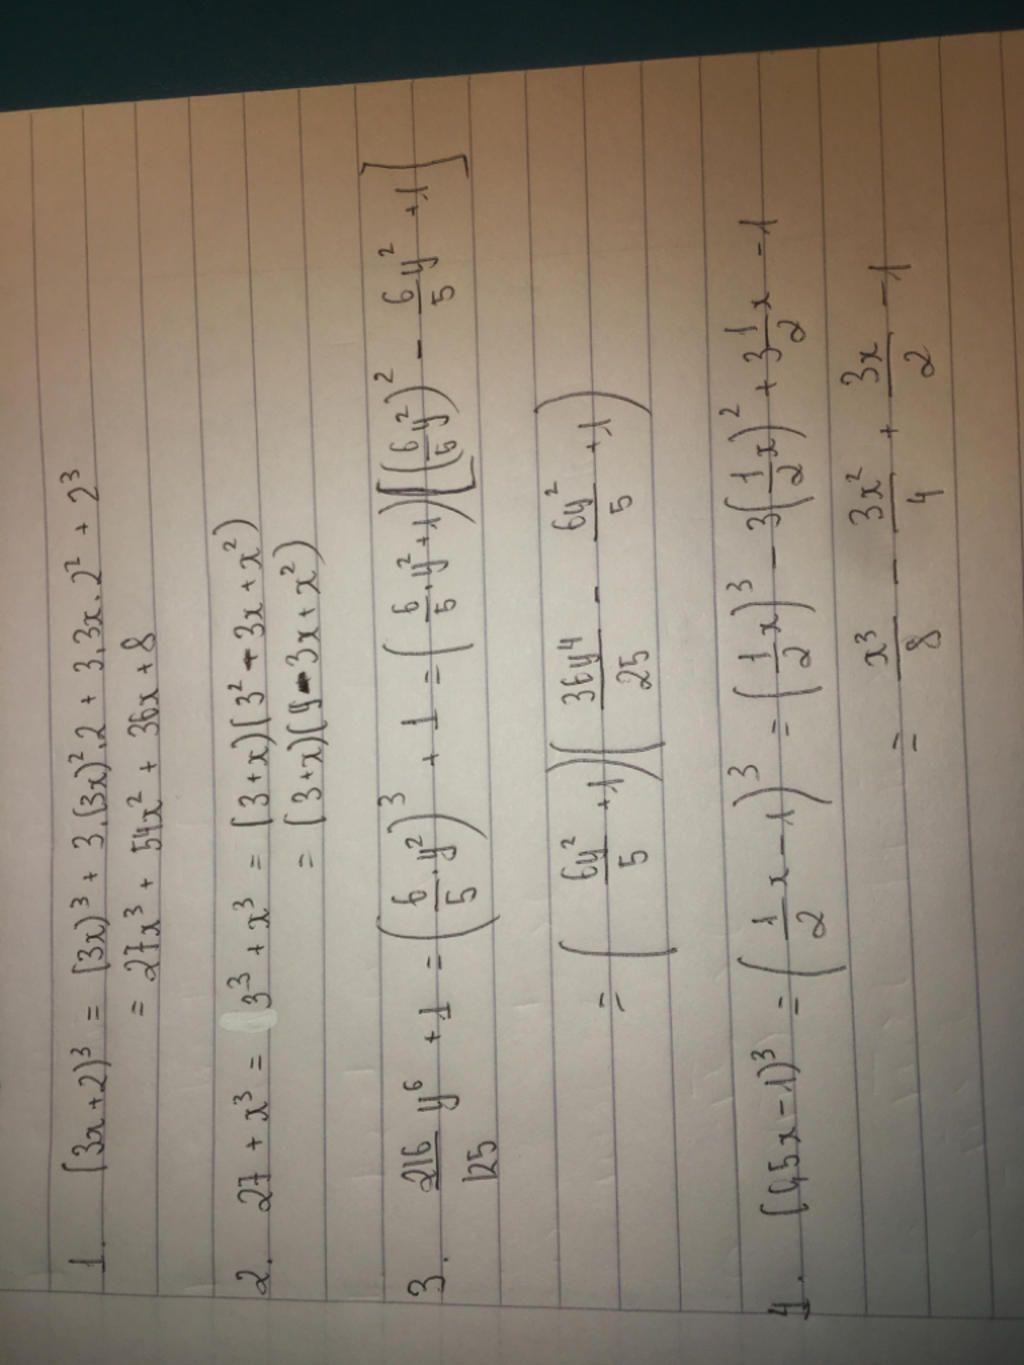 1. (3x+2)³ = (3x)³ + 3.(3x)².2 + 3.3x.2² + 2³
= 27x³ + 54x² + 36x + 8
2. 27 + x³ = 3³ + x³ = (3+x)(3² - 3x + x²)
= (3+x)(9 - 3x + x²)
3. 216/125 y⁶ + 1 = (6/5 . y²)³ + 1 = (6/5 . y² + 1)[(6/5 y²)² - 6/5 y² + 1]
= (6y²/5 + 1)(36y⁴/25 - 6y²/5 + 1)
4. (0,5x - 1)³ = (1/2 x - 1)³ = (1/2 x)³ - 3(1/2 x)² + 3 1/2 x - 1
= x³/8 - 3x²/4 + 3x/2 - 1